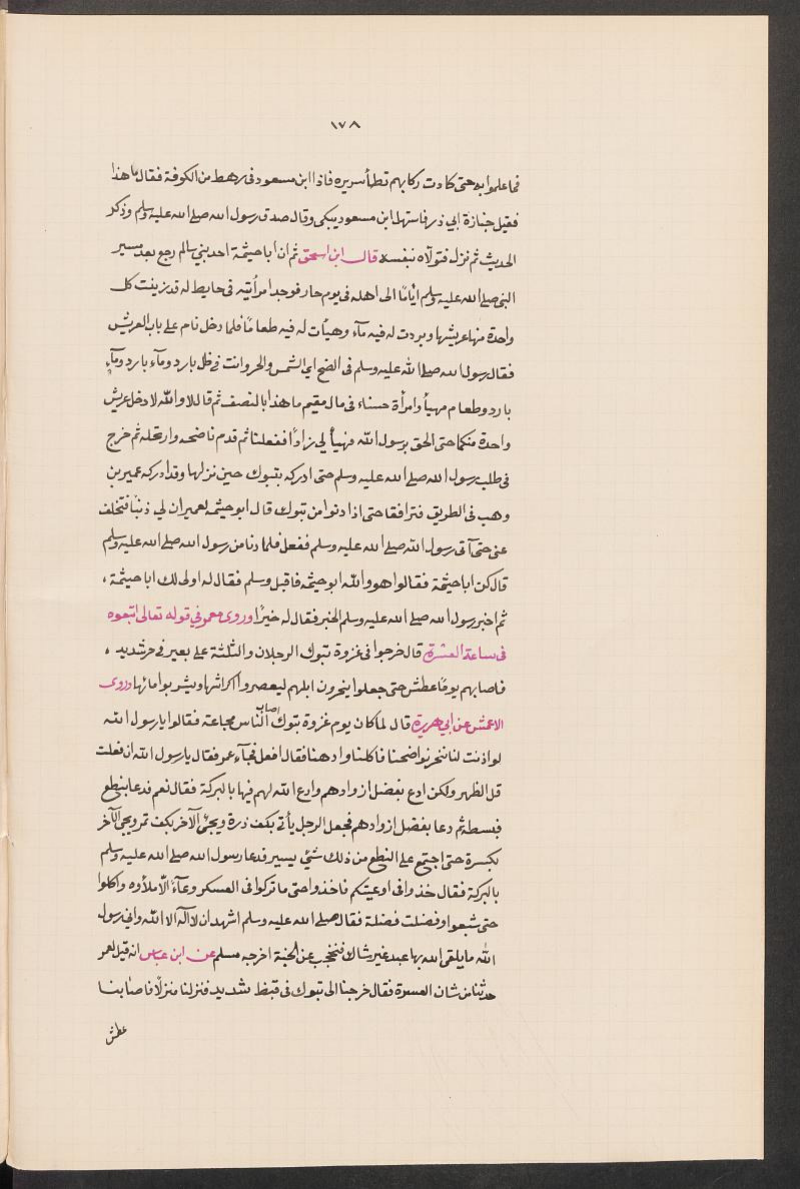 ١٧٨
فما علموا به حتى كادت ركابهم تطأ سريره فاذا ابن مسعود فى رهط من الكوفة فقال ما هذا
فقيل جنازة ابي ذر فاستهل ابن مسعود يبكى وقال صدق رسول الله صلى الله عليه وسلم وذكر
الحديث ثم نزل فتولاه بنفسه قال ابن اسحق ثم ان ابا حيثمة احد بني سالم رجع بعد مسير
النبى صلى الله عليه وسلم ايّامًا الى اهله فى يوم حار فوجد امرأتيه فى حايط له قد زينت كل
واحدة منها عريشها وبردت له فيه مآء وهيأت له فيه طعامًا فلما دخل نام على باب العريش
فقال رسول الله صلى الله عليه وسلم فى الضح اي الشمس والحر وانت فى ظل بارد ومآء بارد ومآء
بارد وطعام مهيأ وامرأة حسناء فى مال مقيم ما هذا بالنصف ثم قال لا والله لا دخل عريش
واحدة منكما حتى الحق برسول الله فهيأ لي زادًا ففعلتا ثم قدم ناضحه وارتحله ثم خرج
فى طلب رسول الله صلى الله عليه وسلم حتى ادركه بتبوك حين نزلها وقد ادركه عمير بن
وهب فى الطريق فترافقا حتى اذا دنوا من تبوك قال ابو حيثمه لعمير ان لي ذنبًا فتخلف
عنى حتى آتى رسول الله صلى الله عليه وسلم ففعل فلما دنا من رسول الله صلى الله عليه وسلم
قال كن ابا حيثمة فقالوا هو والله ابو حيثمه فاقبل وسلم فقال له اولى لك ابا حيثمة ،
ثم اخبر رسول الله صلى الله عليه وسلم الخبر فقال له خيرًا وروى معمر في قوله تعالى اتبعوه
فى ساعة العشرة قال خرجوا فى غزوة تبوك الرجلان والثلثة على بعير فى حر شديد ،
فاصابهم يومًا عطش حتى جعلوا ينحرون ابلهم ليعصروا اكراشها ويشربوا مائها وروى
الاعمش عن ابي هريرة قال لما كان يوم غزوة تبوك اصاب الناس مجاعة فقالوا يا رسول الله
لو اذنت لنا ننحر نواضحنا فاكلنا وادهنا فقال افعل فجآء عمر فقال يا رسول الله ان فعلت
قل الظهر ولكن ادع بفضل ازوادهم وادع الله لهم فيها بالبركة فقال نعم فدعا بنطع
فبسطه ثم دعا بفضل ازوادهم فجعل الرجل يأتي بكف ذرة ويجئ الآخر بكف تمر ويجئ الآخر
بكسرة حتى اجتمع على النطع من ذلك شئي يسير فدعا رسول الله صلى الله عليه وسلم
بالبركة فقال خذوا فى اوعيتكم فاخذوا حتى ما تركوا فى العسكر وعآء الا ملأوه واكلوا
حتى شبعوا وفضلت فضلة فقال صلى الله عليه وسلم اشهد ان لا اله الا الله واني رسول
الله ما يلقى الله بها عبد غير شاك فنحجب عن الجنة اخرجه مسلم عن ابن عباس انه قيل لعمر
حدثنا من شان العسرة فقال خرجنا الى تبوك فى قيظ شديد فنزلنا منزلًا فاصابنا
عطش